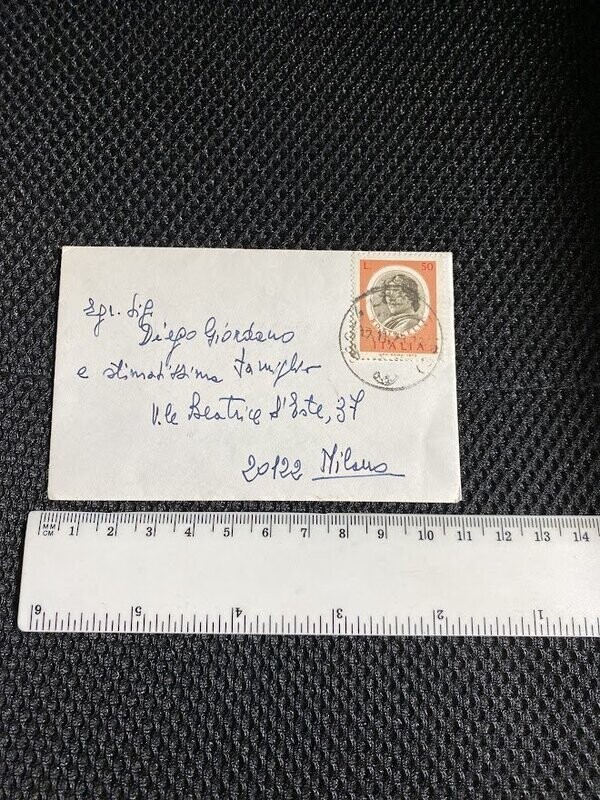 Egr. Sig
Diego Giordano
e stimatissima famiglia
V.le Beatrice d'Este, 37
20122 Milano
L. 50
ITALIA
MM
CM
1 2 3 4 5 6 7 8 9 10 11 12 13 14
6 5 4 3 2 1